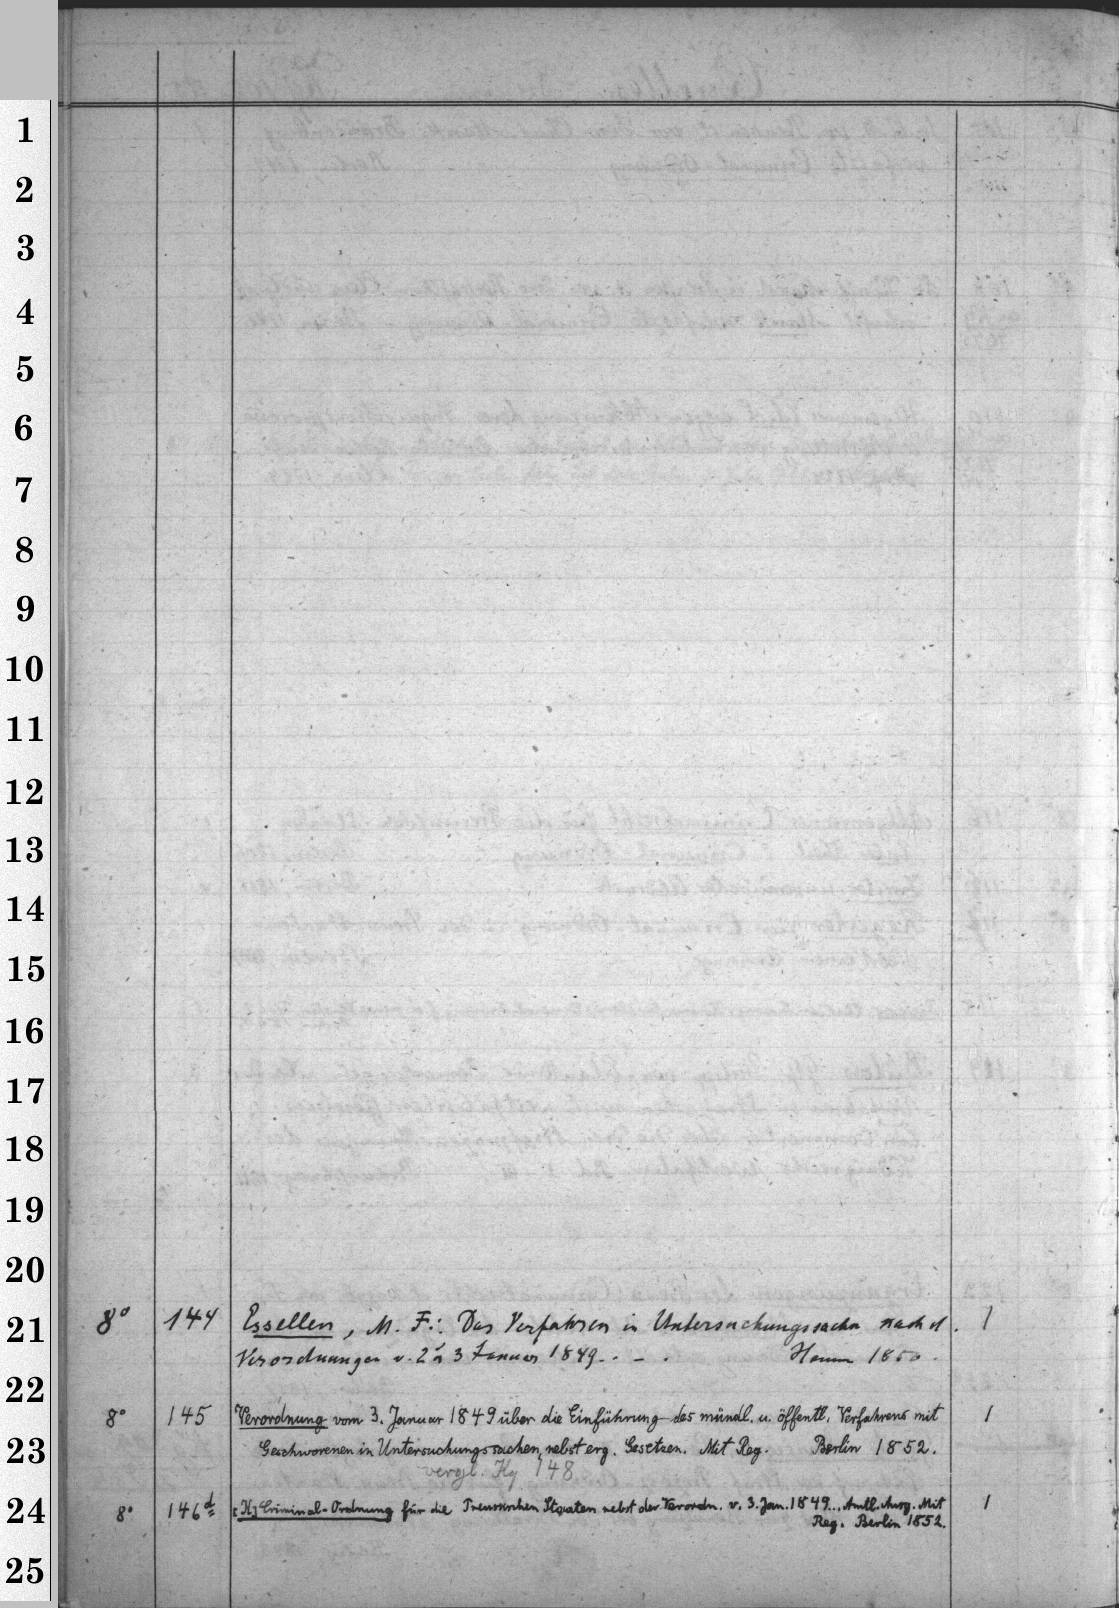 1
2
3
4
5
6
7
8
9
10
11
12
13
14
15
16
17
18
19
20
21
22
23
24
25
8° 144 Essellen, M. F.: Das Verfahren in Untersuchungssachen nach d. 1
Verordnungen v. 2 u 3 Januar 1849. . - . Hamm 1850.
8° 145 Verordnung vom 3. Januar 1849 über die Einführung des mündl. u. öffentl. Verfahrens mit 1
Geschworenen in Untersuchungssachen, nebst erg. Gesetzen. Mit Reg. Berlin 1852.
vergl. Hy 148
8° 146 Criminal-Ordnung für die Preussischen Staaten nebst der Verordn. v. 3. Jan. 1849... Amtl. Ausg. Mit 1
Reg. Berlin 1852.